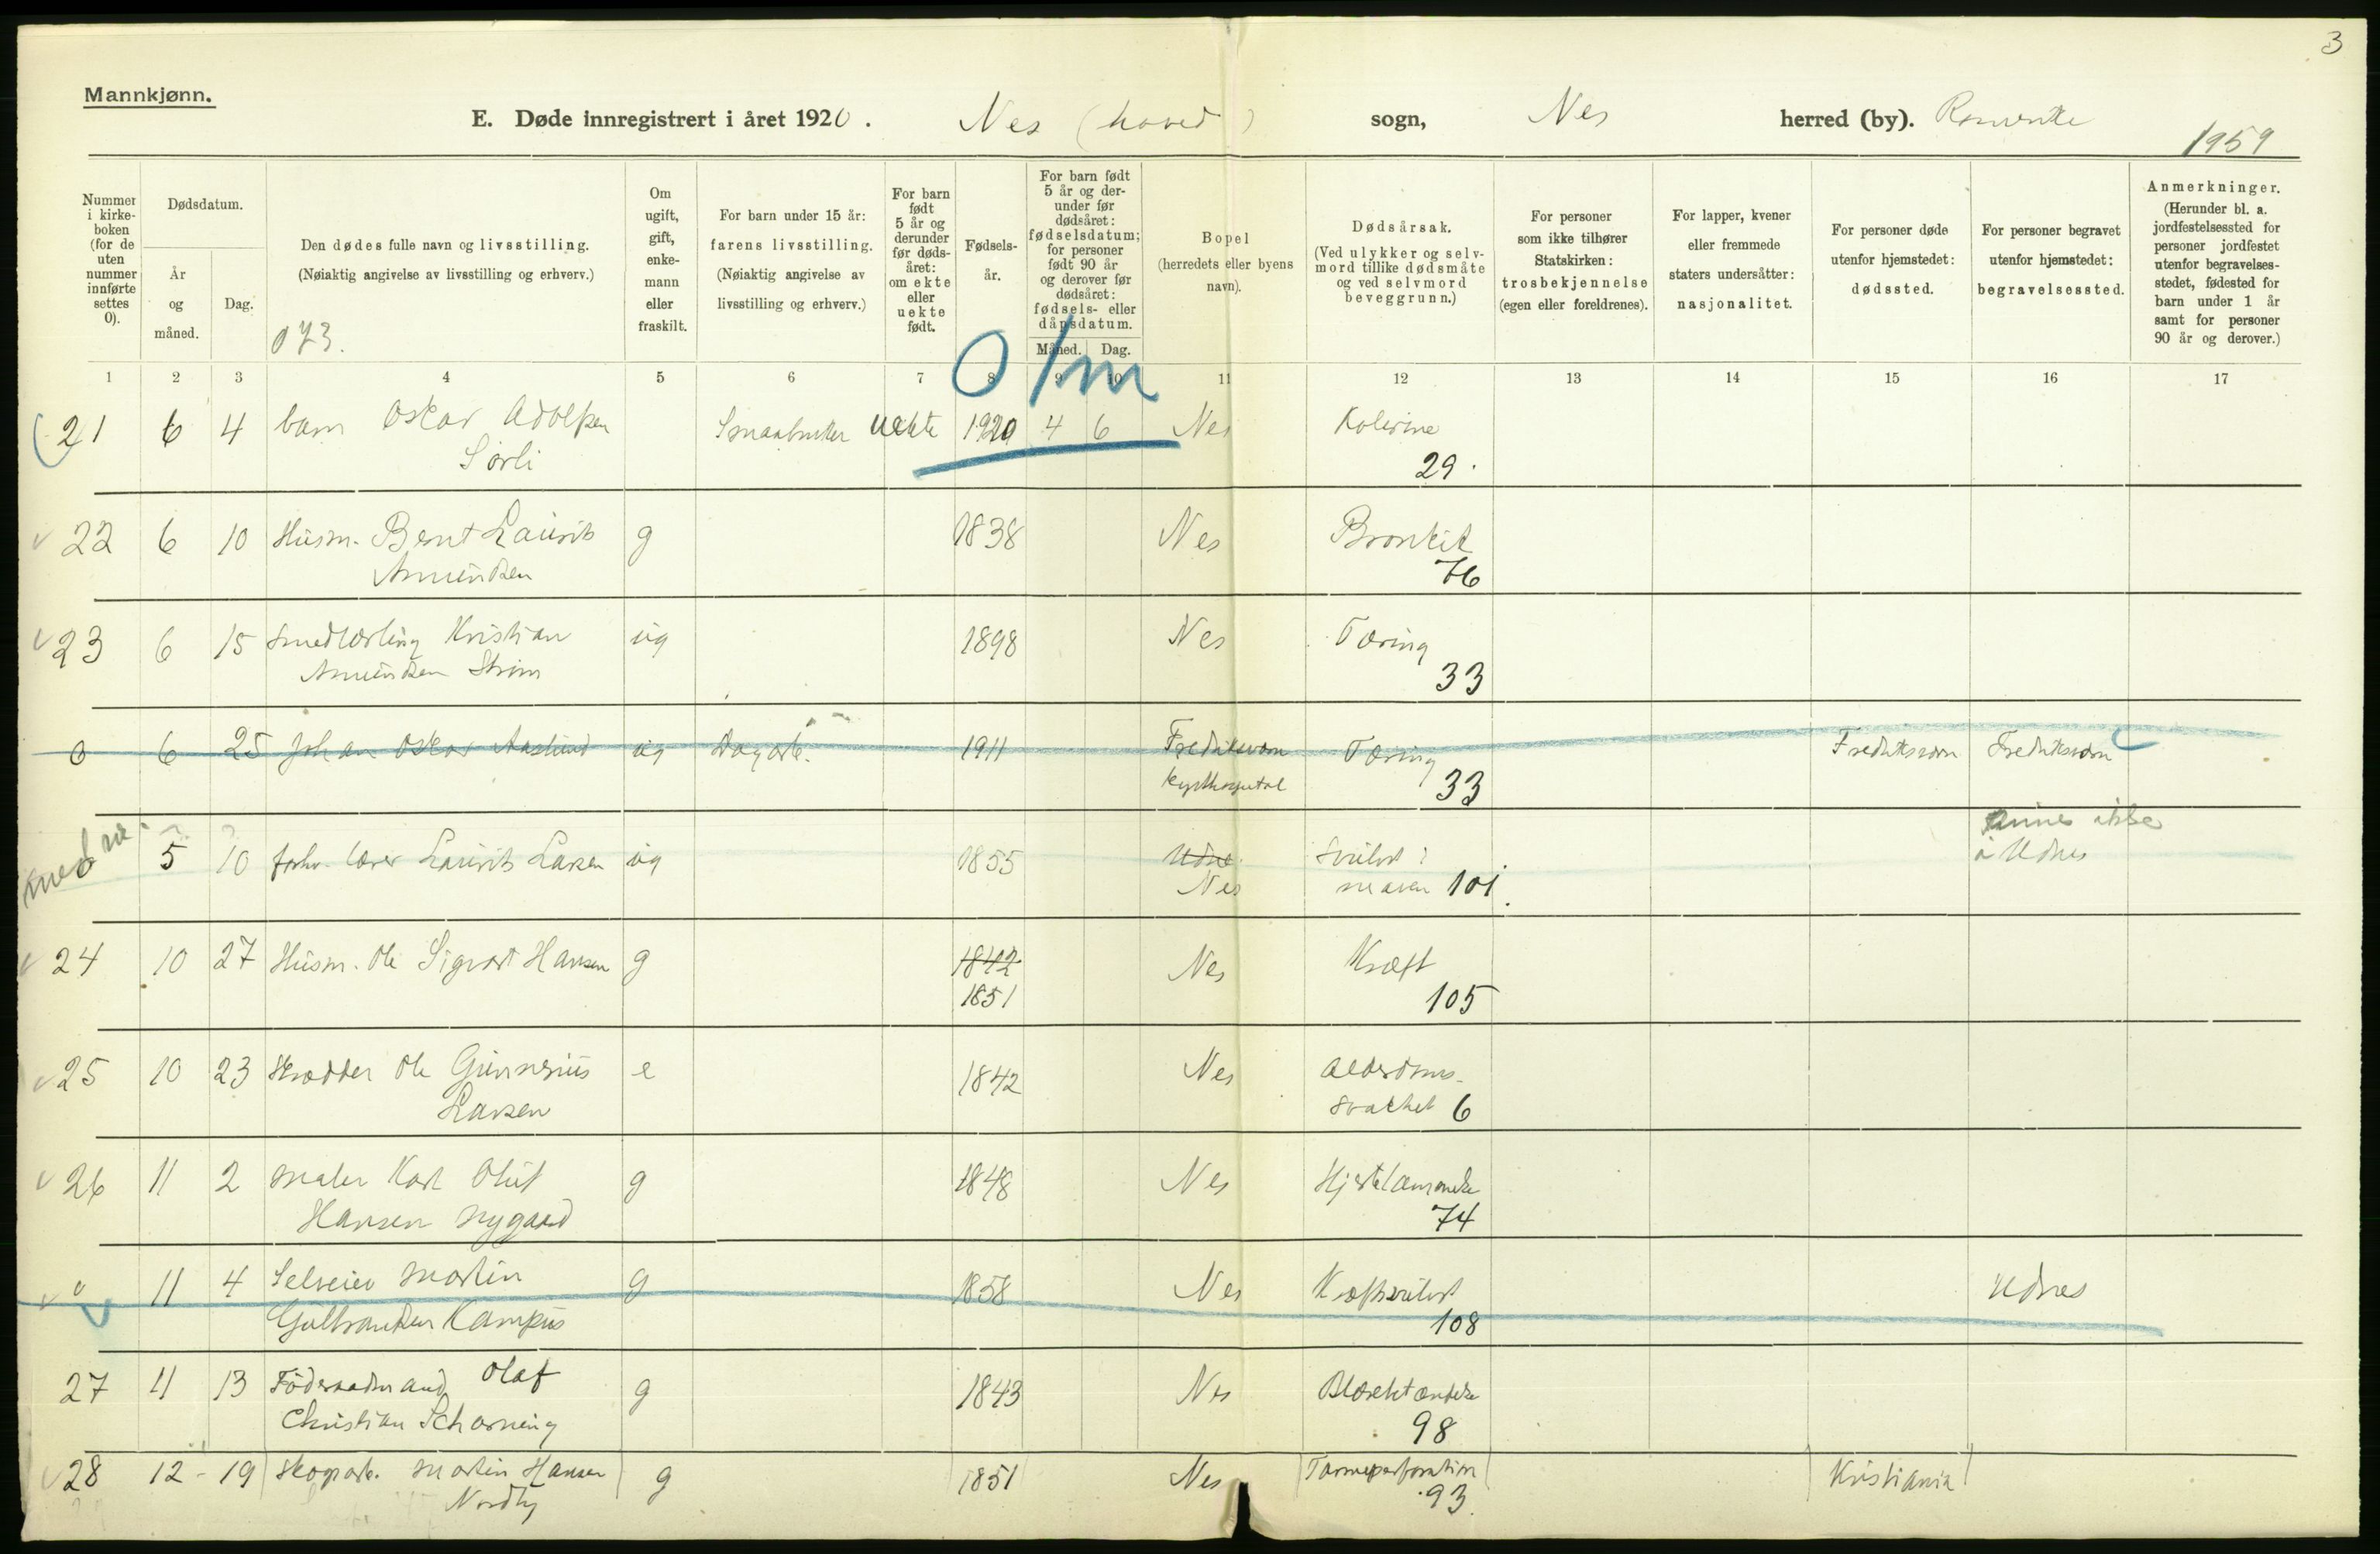 3
Mannkjønn.
E. Døde innregistrert i året 1920. Nes (hoved) sogn, Nes herred (by). Romerike
1959
Nummer i kirke-boken (for de uten nummer innførte settes 0).
Dødsdatum.
År og måned.
Dag.
Den dødes fulle navn og livsstilling.
(Nøiaktig angivelse av livsstilling og erhverv.)
073.
Om ugift, gift, enke-mann eller fraskilt.
For barn under 15 år: farens livsstilling.
(Nøiaktig angivelse av livsstilling og erhverv.)
For barn født 5 år og derunder før døds-året: om ekte eller uekte født.
Fødsels-år.
For barn født 5 år og der-under før dødsåret: fødselsdatum; for personer født 90 år og derover før dødsåret: fødsels- eller dåpsdatum.
Måned. Dag.
Bopel (herredets eller byens navn).
Dødsårsak.
(Ved ulykker og selv-mord tillike dødsmåte og ved selvmord beveggrunn.)
For personer som ikke tilhører Statskirken: trosbekjennelse (egen eller foreldrenes).
For lapper, kvener eller fremmede staters undersåtter: nasjonalitet.
For personer døde utenfor hjemstedet: dødssted.
For personer begravet utenfor hjemstedet: begravelsessted.
Anmerkninger.
(Herunder bl. a. jordfestelsessted for personer jordfestet utenfor begravelses-stedet, fødested for barn under 1 år samt for personer 90 år og derover.)
1 2 3 4 5 6 7 8 9 10 11 12 13 14 15 16 17
0/m
21 6 4 barn Oskar Adolfsen Smaabruker uekte 1920 4 6 Nes Kolerine
Sørli 29.
22 6 10 Husm. Bent Laurits g 1838 Nes Bronkit
Amundsen 76
23 6 15 Smedlærling Kristian ug 1898 Nes Tæring
Amundsen Strøm 33
0 6 25 Johan Oskar Aaslund ug Dagarb. 1911 Fredriksvern Tæring Fredriksvern Fredriksvern
kysthospital 33
med 5 10 forhv. lærer Laurits Larsen ug 1855 Udne Svulst i finnes ikke
Nes maven 101. i Udnes
24 10 27 Husm. Ole Sigvart Hansen g 1842 Nes Kræft
1851 105
25 10 23 Skrædder Ole Gunnerius e 1842 Nes Alderdoms-
Larsen svakhet 6
26 11 2 Maler Karl Oluf g 1848 Nes Hjertelammelse
Hansen Nygaard 74
0 11 4 Selveier Martin g 1858 Nes Kræftsvulst Udnes
Gulbrandsen Kampus 108
27 11 13 Föderaadmand Olaf g 1843 Nes
Christian Scharning 98
28 12 - 19 Skogarb. Martin Hansen g 1851 Nes Tarmperforation Kristiania
Nordby 93.